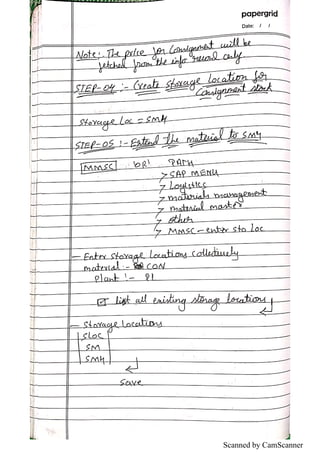 papergrid
Date: / /
Note:- The price for Consignment will be
fetched from the info record only
STEP-04 :- Create Storage Location for
Consignment stock
Storage Loc = SM4
STEP-05 :- Extend The material to SM4
MMSC or PATH
> SAP MENU
> Logistics
> materials management
> material master
> other
> MMSC - enter sto Loc
- Enter Storage Locations Collectively
material :- CON
Plant :- P1
list all existing storage locations
- Storage Locations
SLOC
SM
SM4
save
Scanned by CamScanner